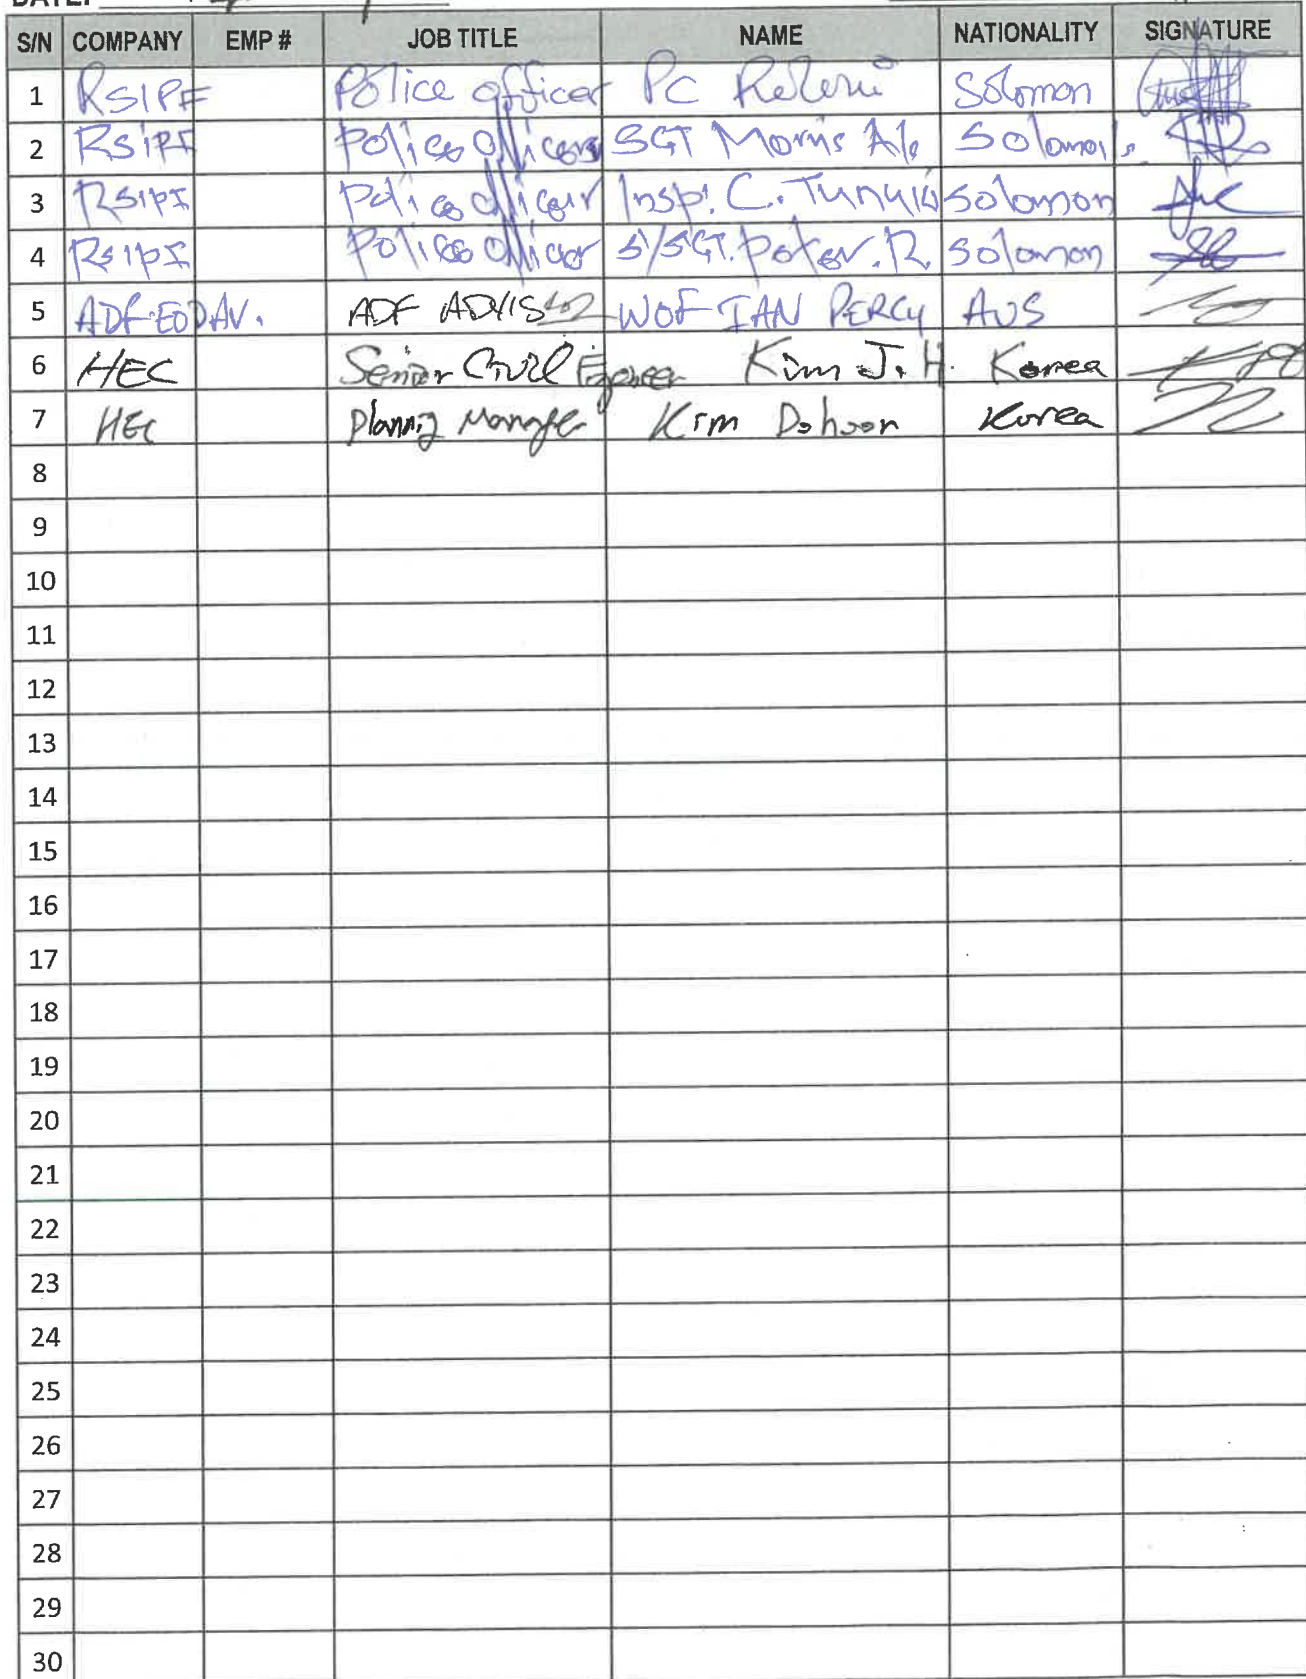 DATE:
S/N COMPANY EMP # JOB TITLE NAME NATIONALITY SIGNATURE
1 RSIPF Police officer PC Solomon
2 RSIPF Police Officers SGT Morris Solomon
3 RSIPF Police officer Insp. C. Solomon
4 RSIPF Police officer S/SGT. Peter. R. Solomon
5 ADF EOD AV. ADF ADVISOR WOF IAN PERCY AUS
6 HEC Senior Civil Engineer Kim J. H. Korea
7 HEC Planning Manager Kim Dohoon Korea
8
9
10
11
12
13
14
15
16
17
18
19
20
21
22
23
24
25
26
27
28
29
30